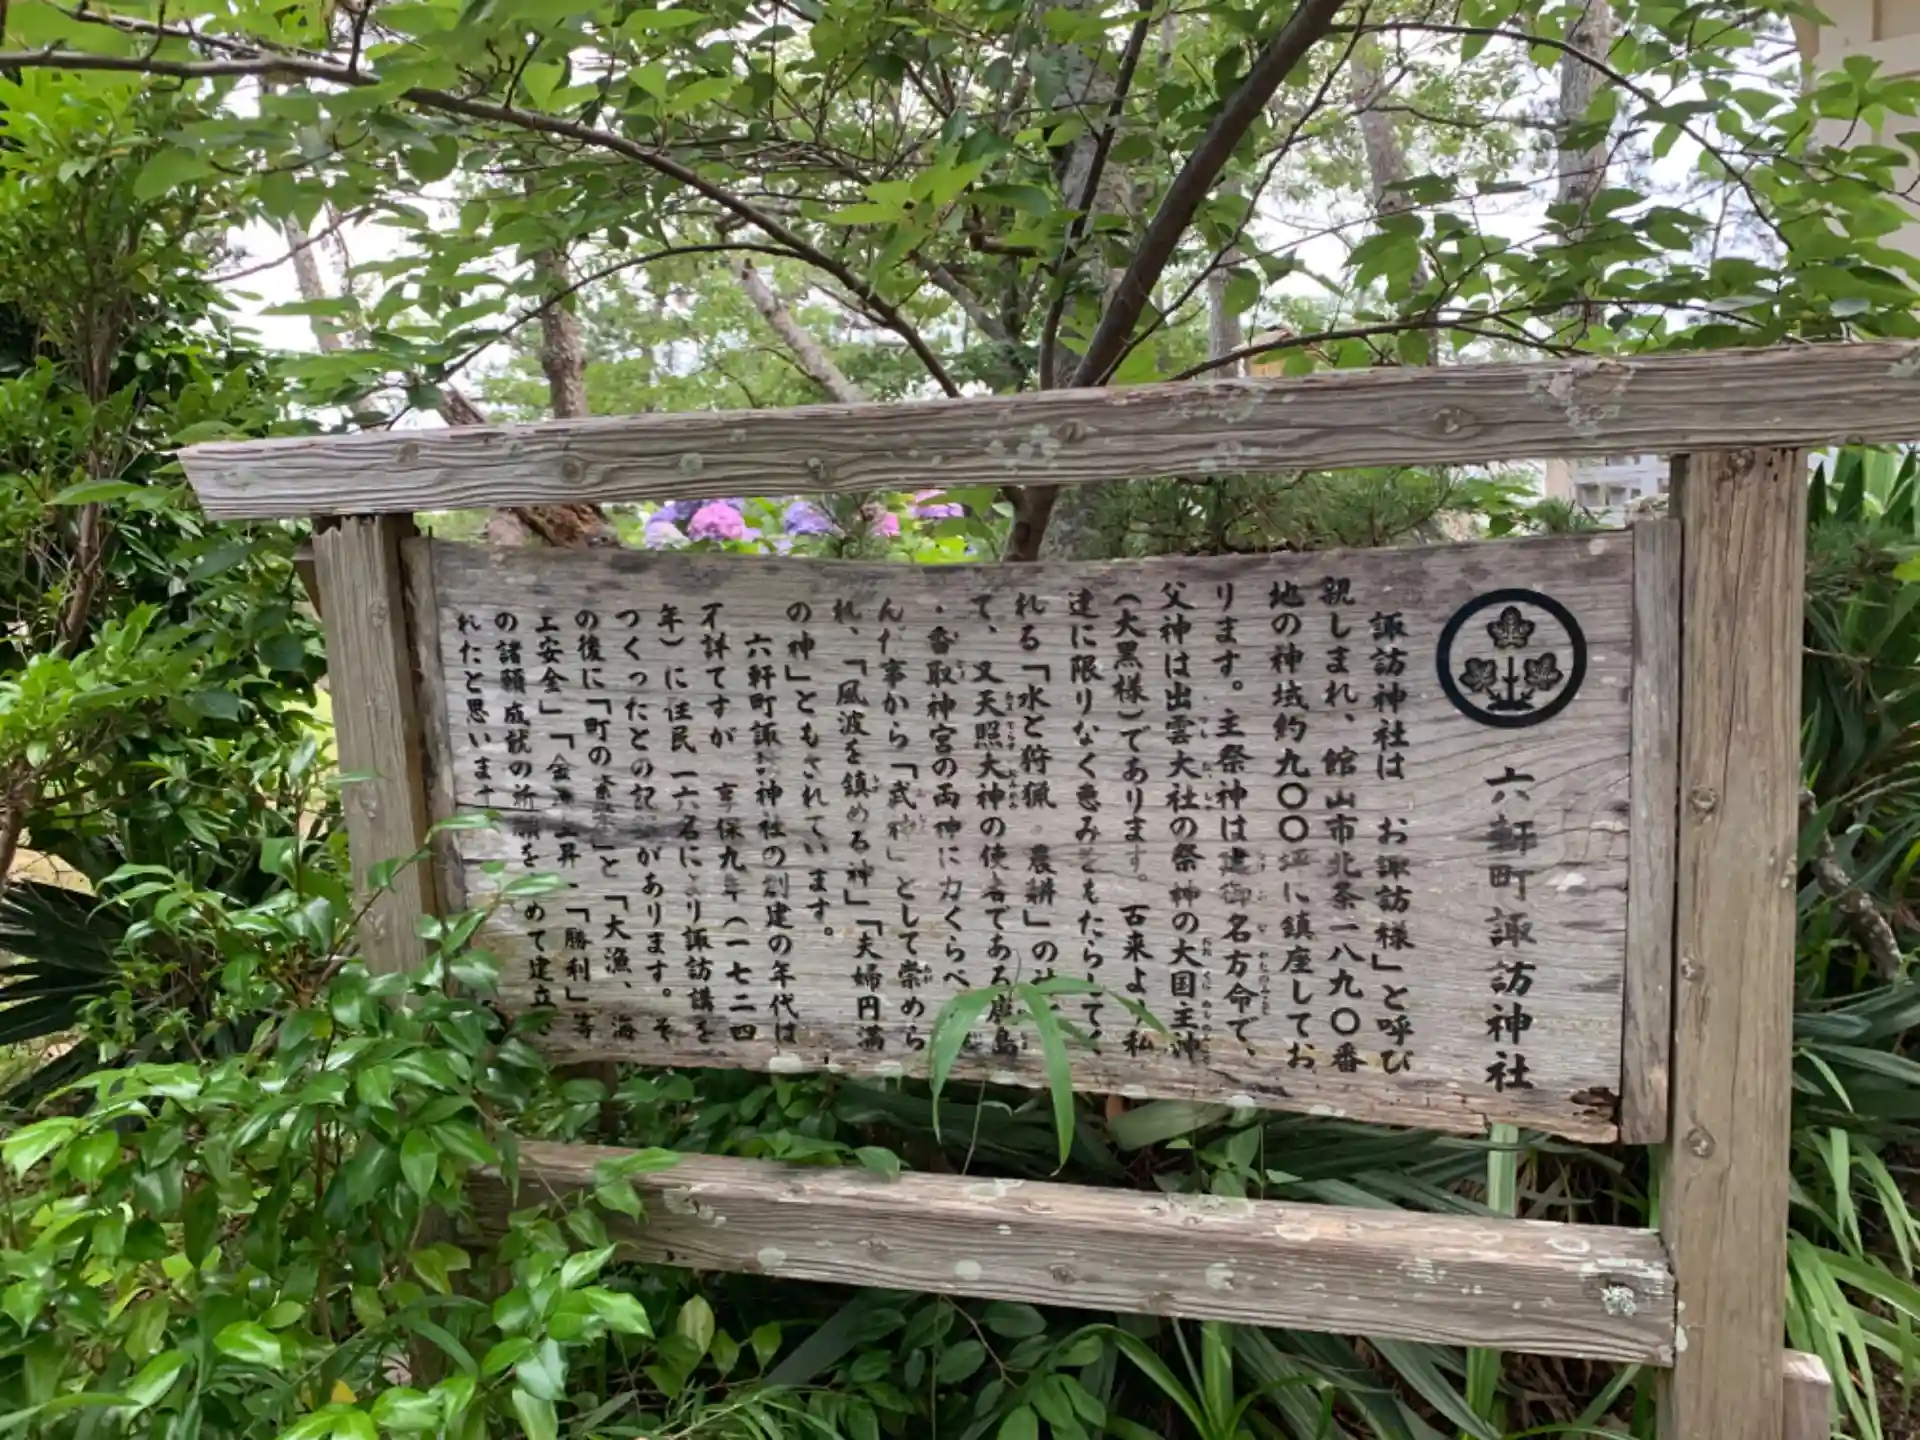 六軒町諏訪神社
諏訪神社は「お諏訪様」と呼び
親しまれ、館山市北条一八九〇番
地の神域約九〇〇坪に鎮座してお
ります。主祭神は建御名方命で、
父神は出雲大社の祭神の大国主神
(大黒様)であります。古来より私
達に限りなく恵みをもたらして
れる「水と狩猟・農耕」の
て、又天照大神の使者である鹿島
・香取神宮の両神に力くらべ
んだ事から「武神」として崇めら
れ、「風波を鎮める神」「夫婦円満
の神」ともされています。
六軒町諏訪神社の創建の年代は
不詳ですが 享保九年(一七二四
年)に住民一六名により諏訪講を
つくったとの記 があります。そ
の後に「町の 」と「大漁、海
上安全」「金 上昇・「勝利」等
の諸願成就の祈願を めて建立さ
れたと思います